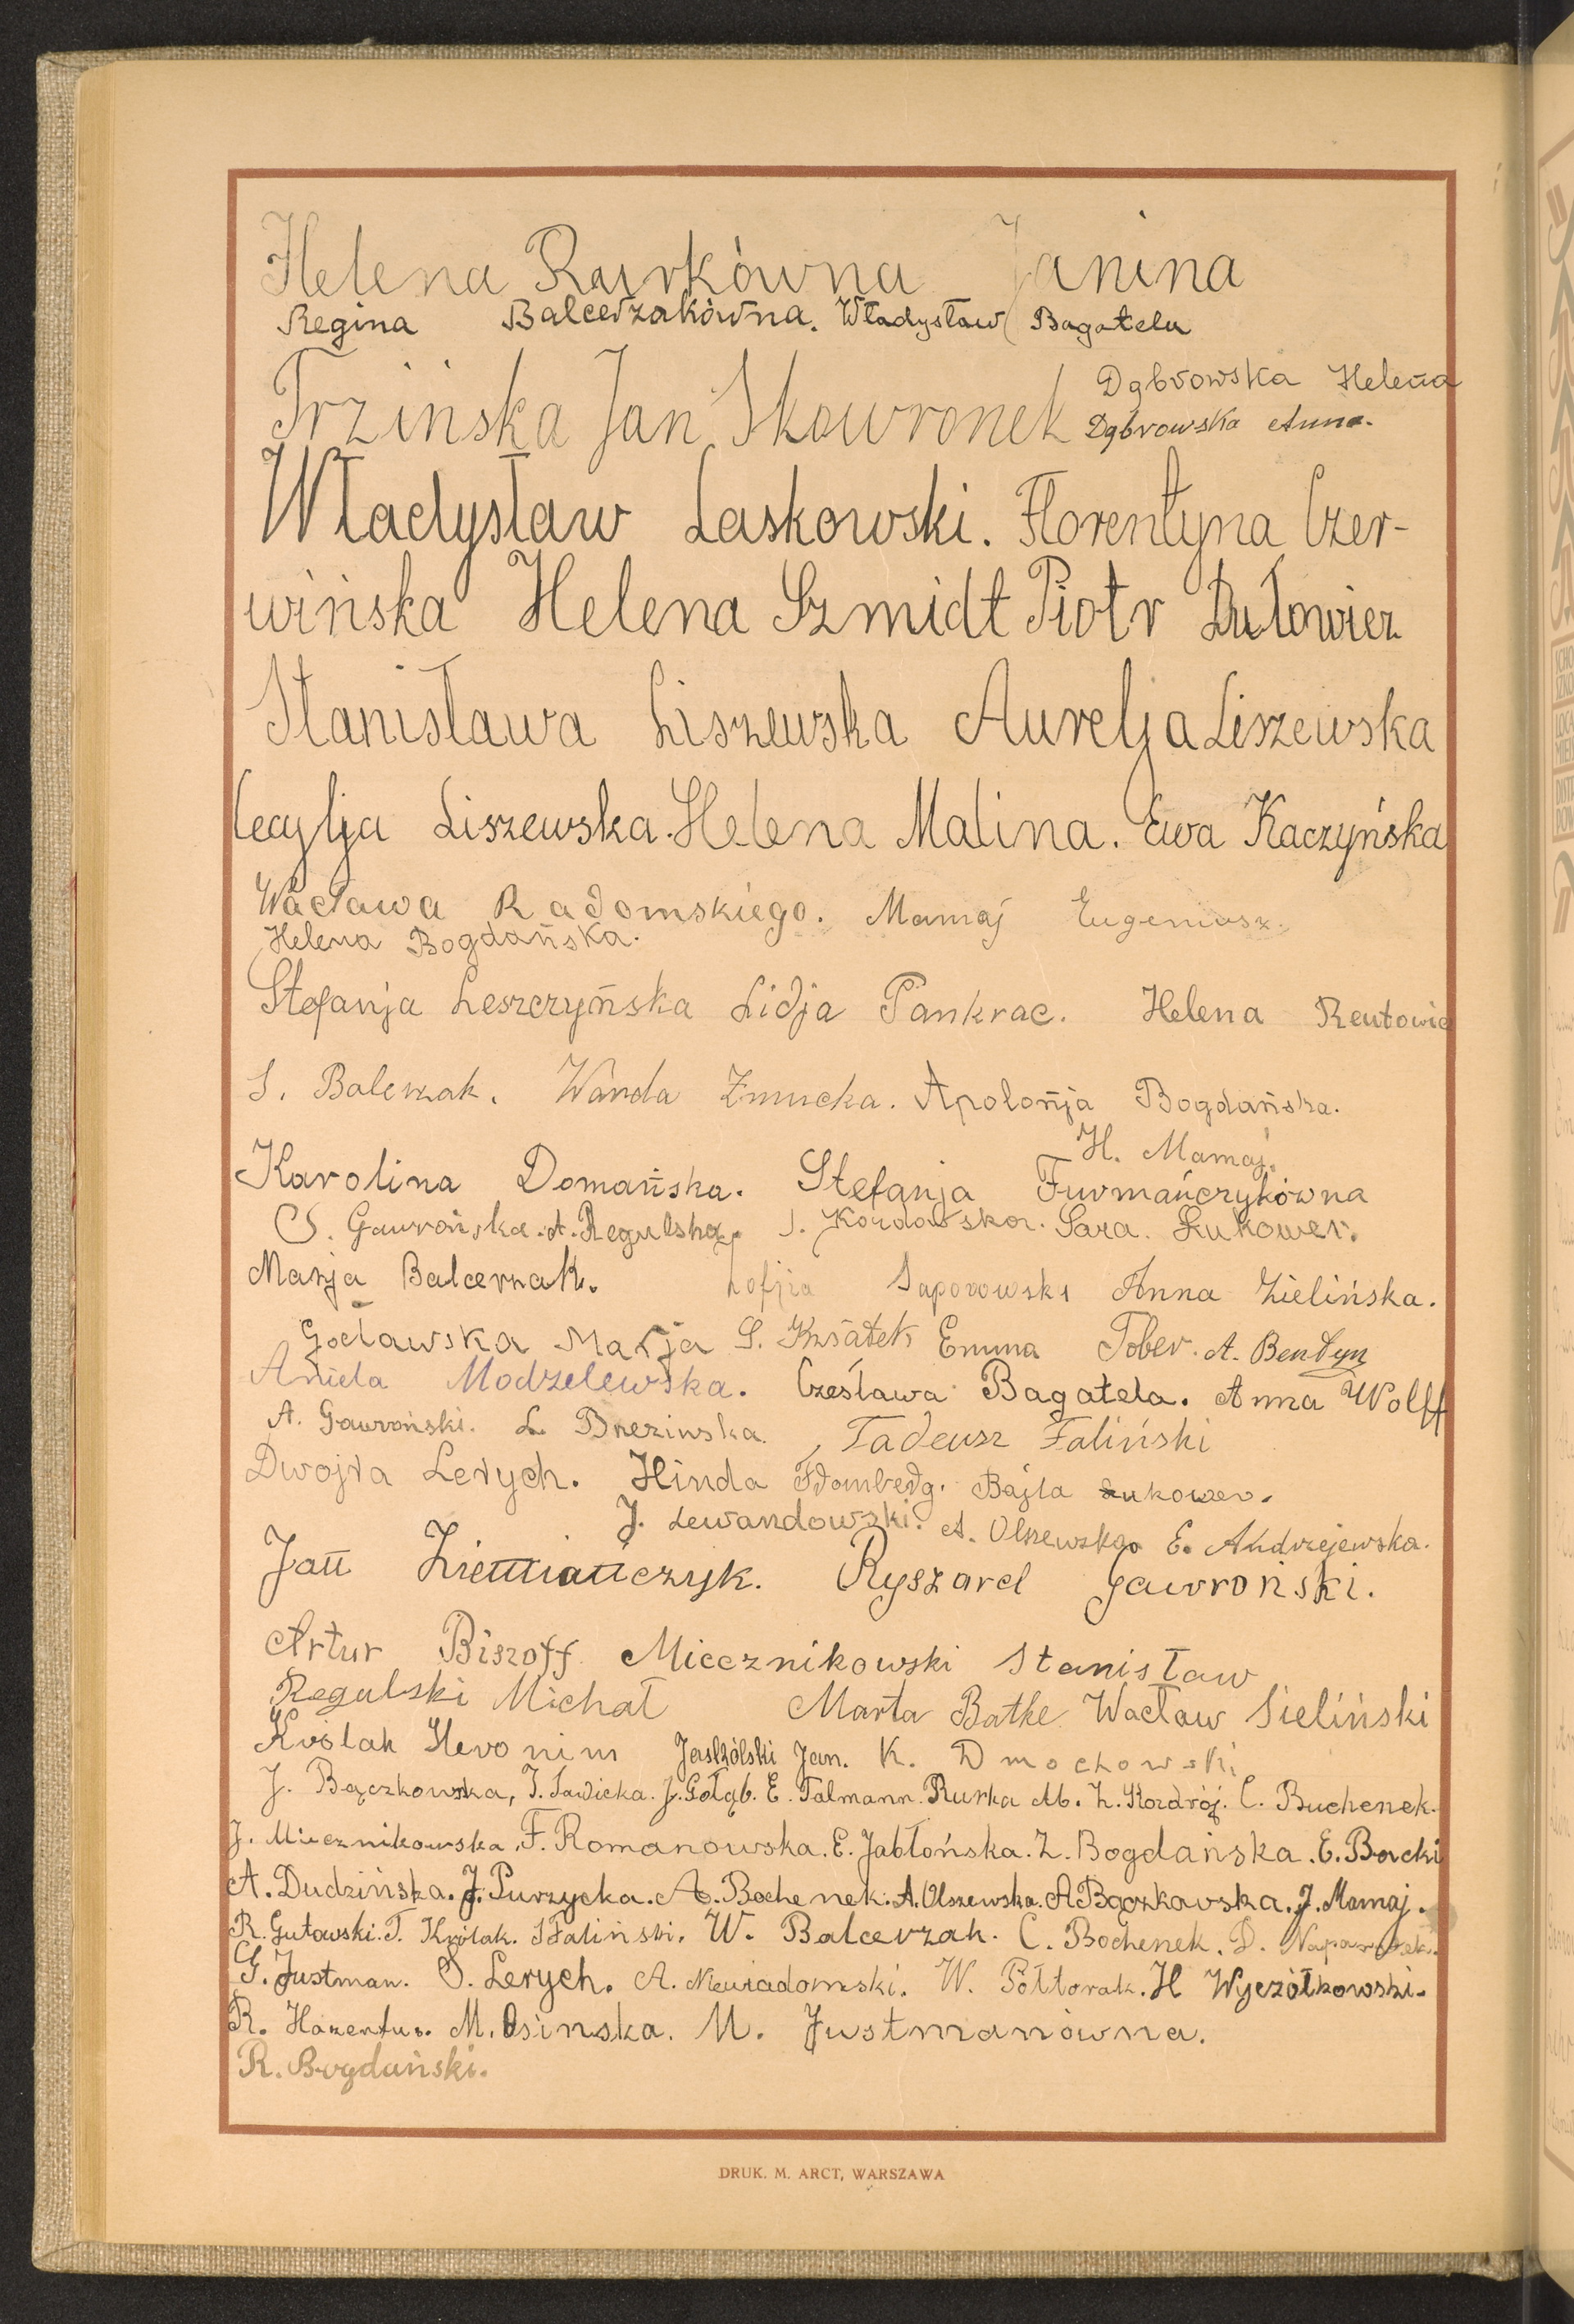 Helena Rurkówna Janina
Regina Balcerzakówna. Władysław Bagatela
Trzinska Jan Skowronek Dąbrowska Helena
Dąbrowska Anna.
Władysław Laskowski. Florentyna Czer-
wińska Helena Szmidt Piotr Dutowicz
Stanisława Liszewska Aurelja Liszewska
Cecylja Liszewska. Helena Malina. Ewa Kaczyńska
Wacława Radomskiego. Mamaj Eugeniusz.
Helena Bogdańska.
Stefanja Leszczyńska Lidja Pankrac. Helena Reutowic
S. Balcerzak. Wanda Żmucka. Apolońja Bogdańska.
H. Mamaj.
Karolina Domańska. Stefanja Furmańczykówna
S. Gawrońska. A. Regulska. Sara. Łukower.
Marja Balcerzak. Zofjia Saporowska Anna Zielińska.
Gocławska Marja S. Kwiatek Emma Tober. A. Bentyn
Aniela Modzelewska. Czesława Bagatela. Anna Wolff
A. Gawroński. L. Brezinska. Tadeusz Faliński
Dwojra Lerych. Hinda Bajla Łukower.
J. Lewandowski. A. Olszewska E. Andrzejewska.
Jan Ziemiańczyk. Ryszard Gawroński.
Artur Biszoff Miecznikowski Stanisław
Regulski Michał Marta Batke Wacław Sieliński
Królak Heronim Jaskólski Jan. K. Dmochowski
J. Bączkowska, J. Sawicka. J. Gołąb. E. Talmann. Rurka M. Z. Kozdrój. C. Buchenek.
J. Miecznikowska, F. Romanowska. E. Jabłońska. Z. Bogdańska. E. Borcki
A. Dudzińska. J. Purzycka. A. Bochenek. A. Olszewska. A Bączkowska. J. Mamaj.
R. Gutowski. T. Królak. S Faliński. W. Balcerzak. C. Bochenek. D. Naparstek.
G. Justman. O. Lerych. A. Niewiadomski. W. Półtorak. H Wyczółkowski.
R. Hazentus. M. Osinska. M. Justmanówna.
R. Bogdański.
DRUK. M. ARCT, WARSZAWA